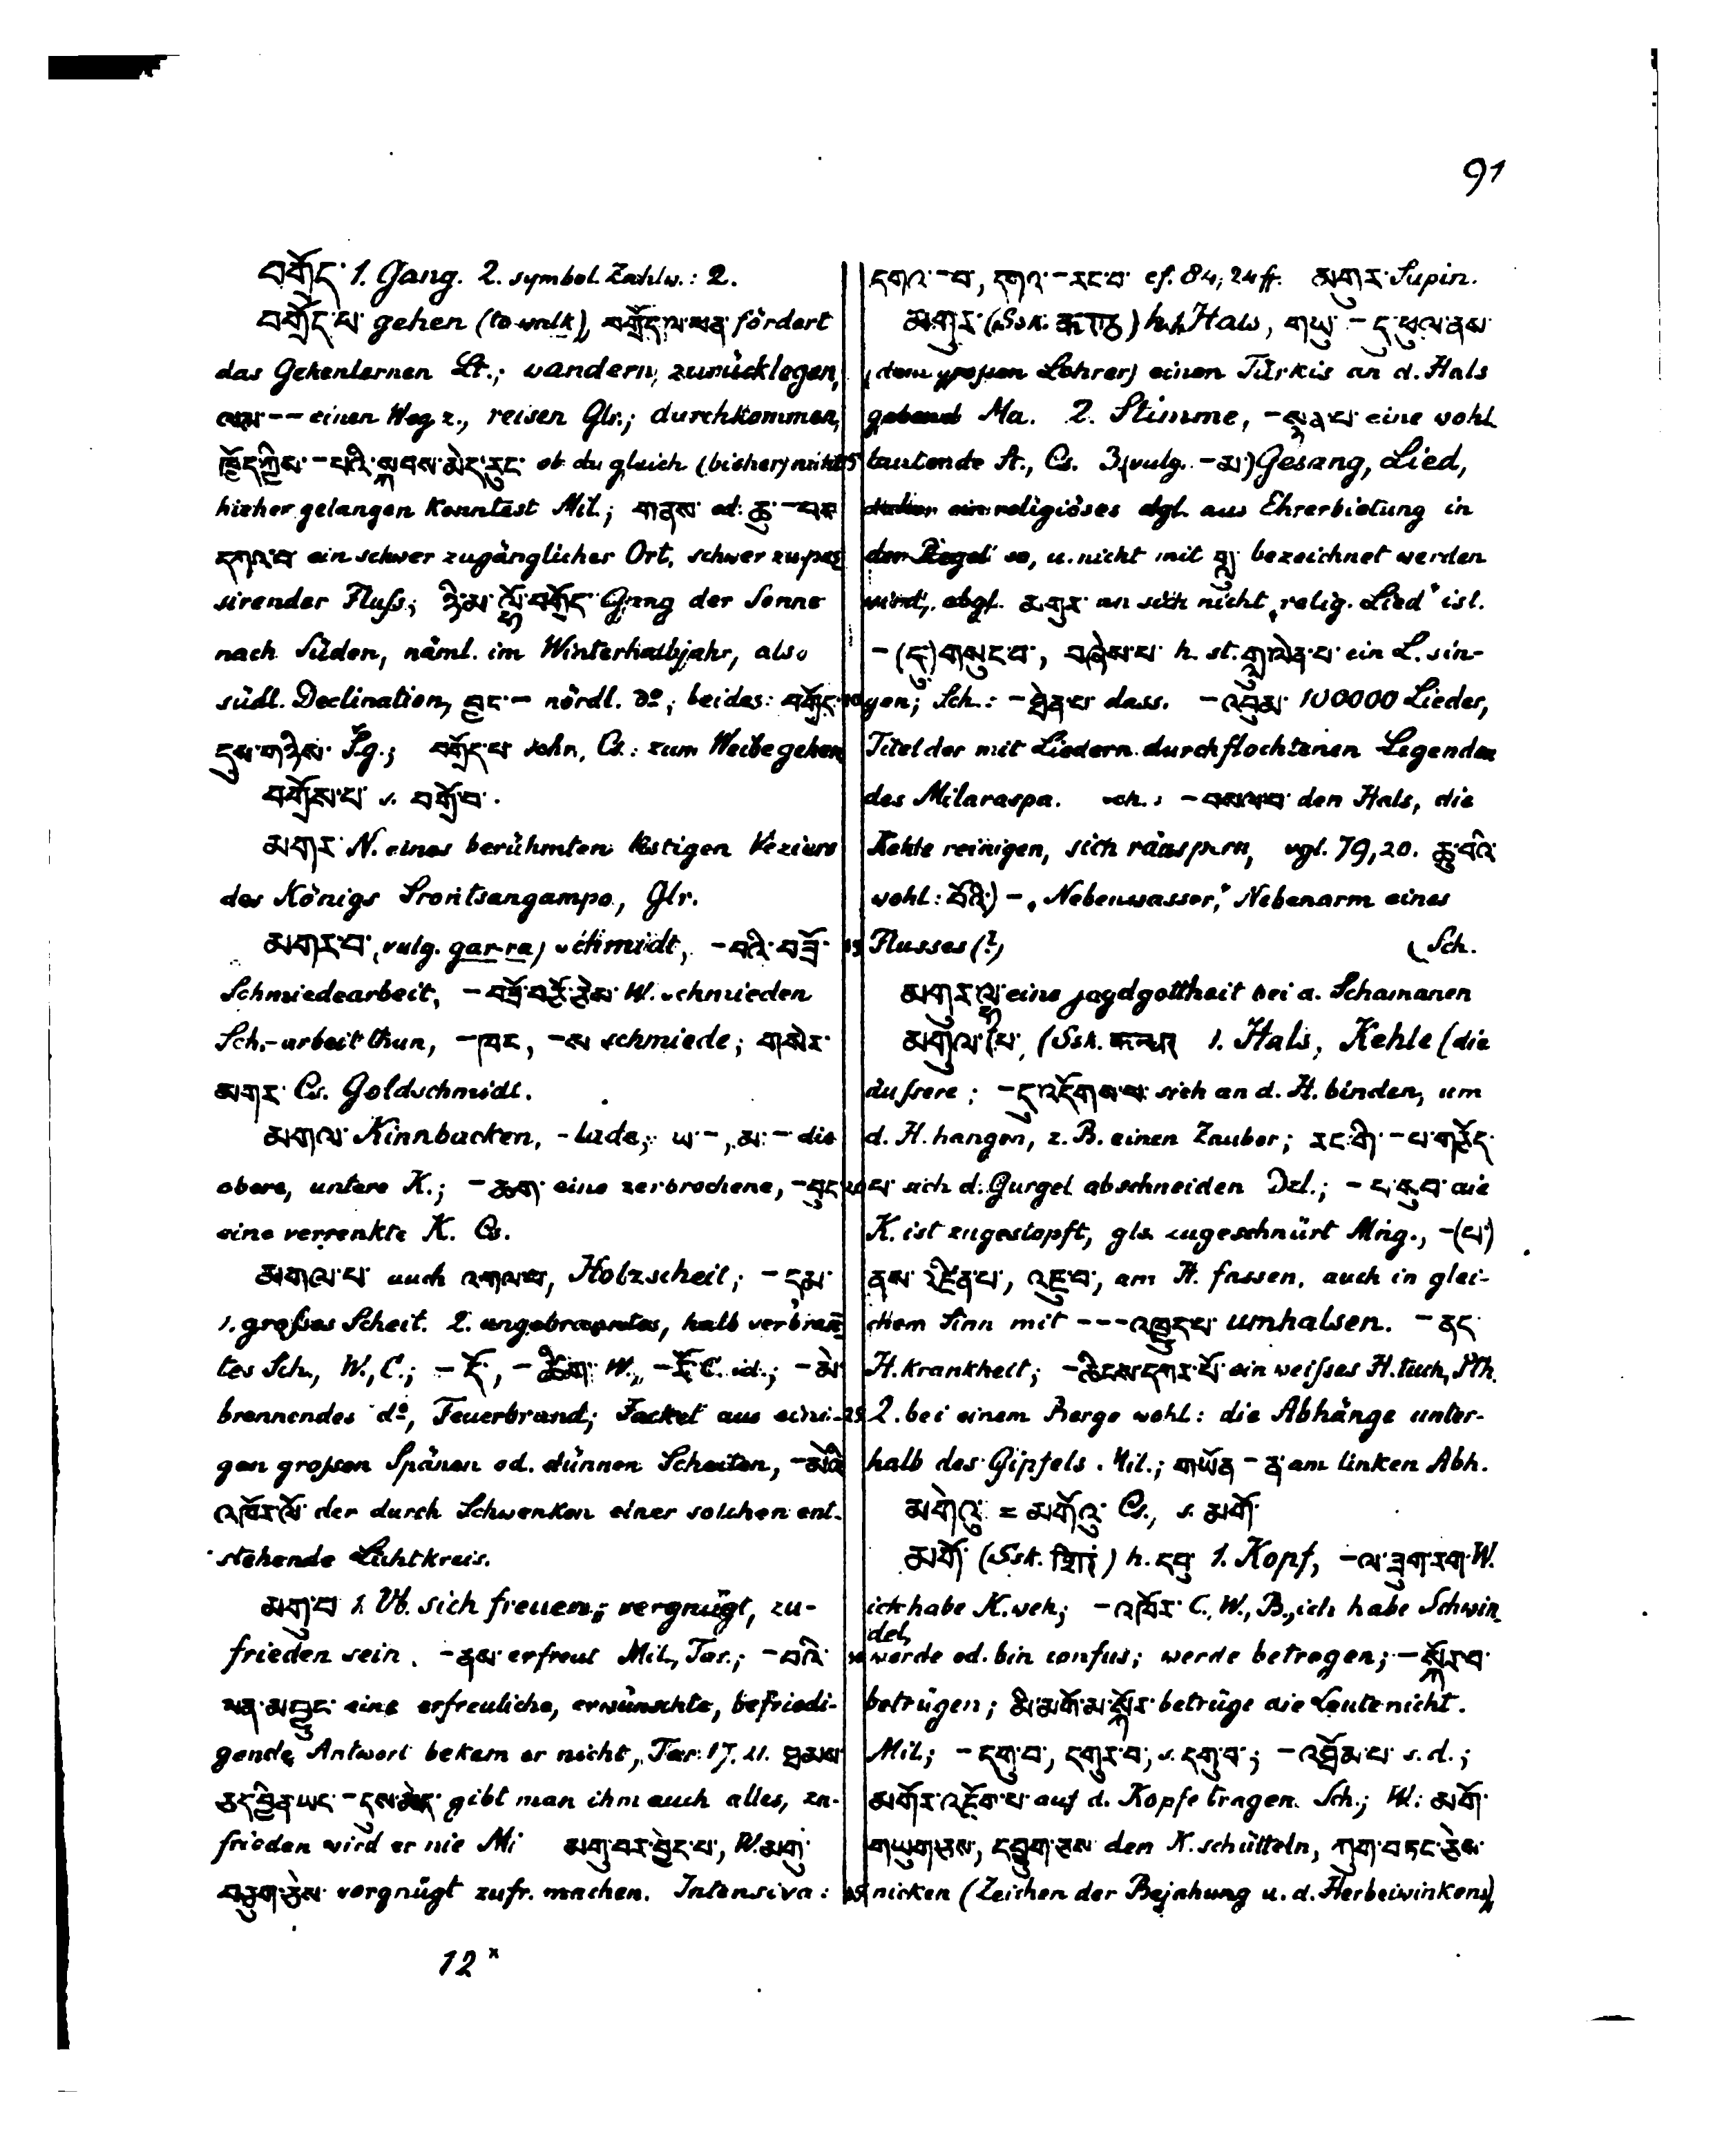 91
བགྲོད་ 1. Gang. 2. symbol. Zahlw.: 2.
བགྲོད་པ་ gehen (to walk), བགྲོད་ལ་ཕན་ fördert
das Gehenlernen Lt.; wandern, zurücklegen,
ལམ་ -- einen Weg z., reisen Glr.; durchkommen,
ཁྱོད་ཀྱིས་ -པའི་སྐབས་མེད་རུང་ ob du gleich (bisher) nicht
hieher gelangen konntest Mil.; གནས་ od. ཆུ་ -པར་
དཀའ་བ་ ein schwer zugänglicher Ort, schwer zu pas-
sirender Fluß; ཉི་མ་ལྷོ་བགྲོད་ Gang der Sonne
nach Süden, näml. im Winterhalbjahr, also
südl. Declination, བྱང་ - nördl. do; beides: བགྲོད་
དུས་གཉིས་ Lg.; བགྲོད་པ་ Cs.: zum Weibe gehen
བགྲོས་པ་ s. བགྲོ་བ་.
མགར་ N. eines berühmten listigen Veziers
des Königs Srontsangampo, Glr.
མགར་བ་ vulg. gar-ra) Schmidt, -བའི་བཟོ་
Schmiedearbeit, -བཟོ་བཅོ་ཅེས་ W. schmieden
Sch.-arbeit thun, -ཁང་, -ས་ schmiede; གསེར་
མགར་ Cs. Goldschmidt.
མགལ་ Kinnbacken, -lade; ཡ་ -, མ་ - die
obere, untere K.; -ཆག་ eine zerbrochene, -བུད་
eine verrenkte K. Cs.
མགལ་པ་ auch འགལ་པ་, Holzscheit; -དུམ་
1. großes Scheit. 2. angebranntes, halb verbran̄-
tes Sch., W., C.; W., C. id.; -མེ་
brennendes do, Feuerbrand; Fackel aus eini-
gen großen Spänen od. dünnen Scheiten, -མེའི་
འཁོར་ལོ་ der durch Schwenken einer solchen ent-
stehende Lichtkreis.
མགུ་བ་ 1. Vb. sich freuen; vergnügt, zu-
frieden sein. -ནས་ erfreut Mil., Tar.; -བའི་
ལན་མ་བྱུང་ eine erfreuliche, erwünschte, befriedi-
gende Antwort bekam er nicht, Tar. 17, 21. ཐམས་
ཅད་བྱིན་ཡང་ -དུས་མེད་ gibt man ihm auch alles, zu-
frieden wird er nie Mi མགུ་བར་བྱེད་པ་, W. མགུ་
བཅུག་ཅེས་ vergnügt zufr. machen. Intensiva:
12ˣ
དགའ་ -བ་, དགའ་ -རང་བ་ cf. 84, 24 ff. མགུར་ Supin.
མགུར་ (Ssk. कण्ठ) h. 1. Hals, གཡུ་ -དུ་ཕུལ་ནས་
(dem großen Lehrer) einen Türkis an d. Hals
gebend Ma. 2. Stimme, -སྙན་པ་ eine wohl
lautende St., Cs. 3. (vulg. -མ་) Gesang, Lied,
religiöses dgl. aus Ehrerbietung in
der Regel so, u. nicht mit གླུ་ bezeichnet werden
wird, obgl. མགུར་ an sich nicht „relig. Lied" ist.
-(དུ་)གསུང་བ་, བཞེས་པ་ h. st. གླུ་ལེན་པ་ ein L. sin-
gen; Sch.: -ཐེན་པ་ dass. -འབུམ་ 100000 Lieder,
Titel der mit Liedern durchflochtenen Legenden
des Milaraspa. Sch.: -བསལ་བ་ den Hals, die
Kehle reinigen, sich räuspern, vgl. 79, 20. ཆུ་བའི་
wohl: བོའི་) - „Nebenwasser," Nebenarm eines
Flusses (?) (Sch.
མགུར་ལྷ་ eine Jagdgottheit bei d. Schamanen
མགུལ་(པ་ (Ssk. 1. Hals, Kehle (die
äußere; -དུ་འདོགས་པ་ sich an d. H. binden, um
d. H. hangen, z. B. einen Zauber; རང་གི་ -པ་གཅོད་
པ་ sich d. Gurgel abschneiden Dzl.; -པ་ die
K. ist zugestopft, gls. zugeschnürt Mng., -(པ་)
ནས་འཛིན་པ་, འཇུ་བ་, am H. fassen, auch in glei-
chem Sinn mit ---འཁྱུད་པ་ umhalsen. -ནད་
H. krankheit; -ཅིངས་དཀར་པོ་ ein weißes H. tuch, Pth.
2. bei einem Berge wohl: die Abhänge unter-
halb des Gipfels. Mil.; གཡོན་ -ན་ am linken Abh.
མགེའུ་ = མགོའུ་ Cs., s. མགོ་
མགོ་ (Ssk. शिर) h. དབུ་ 1. Kopf, -ལ་ཟུག་རག་ W.
ich habe K. weh; -འཁོར་ C., W., B., ich habe Schwin
del,
werde od. bin confus; werde betrogen; -སྐོར་བ་
betrügen; མི་མགོ་མ་སྐོར་ betrüge die Leute nicht.
Mil; -དགུ་བ་, དགུར་བ་, s. དགུ་བ་; -འཐོམ་པ་ s. d.;
མགོར་འཇོག་པ་ auf d. Kopfe tragen. Sch.; W.: མགོ་
གཡུག་ཅས་, དབྱུག་ཅས་ den K. schütteln, ཀུག་བཏང་ཅེས་
nicken (Zeichen der Bejahung u. d. Herbeiwinkens)